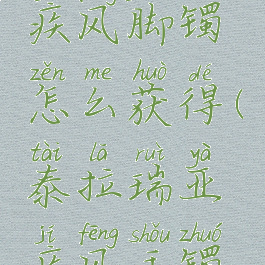 疾风脚镯
zěn me huò dé
怎么获得(
tài lā ruì yà
泰拉瑞亚
jí fēng shǒu zhuó
疾风手镯